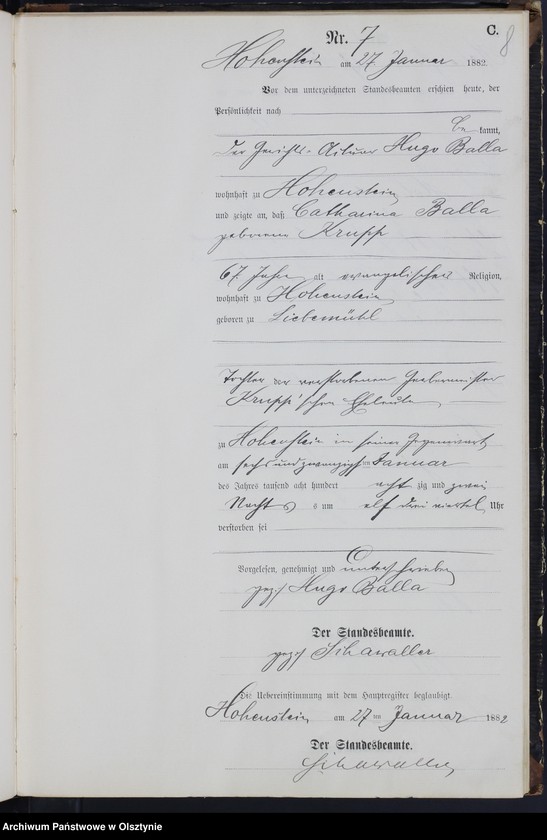 C.
8
Nr. 7
Hohenstein am 27 Januar 1882.
Vor dem unterzeichneten Standesbeamten erschien heute, der
Persönlichkeit nach
be kannt,
der Gerichts-Aktuar Hugo Balla
wohnhaft zu Hohenstein
und zeigte an, daß Catharina Balla
geborene Krupp
67 Jahre alt evangelischer Religion,
wohnhaft zu Hohenstein
geboren zu Liebemühl
Tochter der verstorbenen Gerbermeister
Krupp'schen Eheleute
zu Hohenstein in seiner Gegenwart
am sechs und zwanzigsten Januar
des Jahres tausend acht hundert acht zig und zwei
Nachts um elf drei viertel Uhr
verstorben sei
Vorgelesen, genehmigt und unterschrieben
gez. Hugo Balla
Der Standesbeamte.
gez.
Die Uebereinstimmung mit dem Hauptregister beglaubigt.
Hohenstein am 27 ten Januar 1882
Der Standesbeamte.
Archiwum Państwowe w Olsztynie